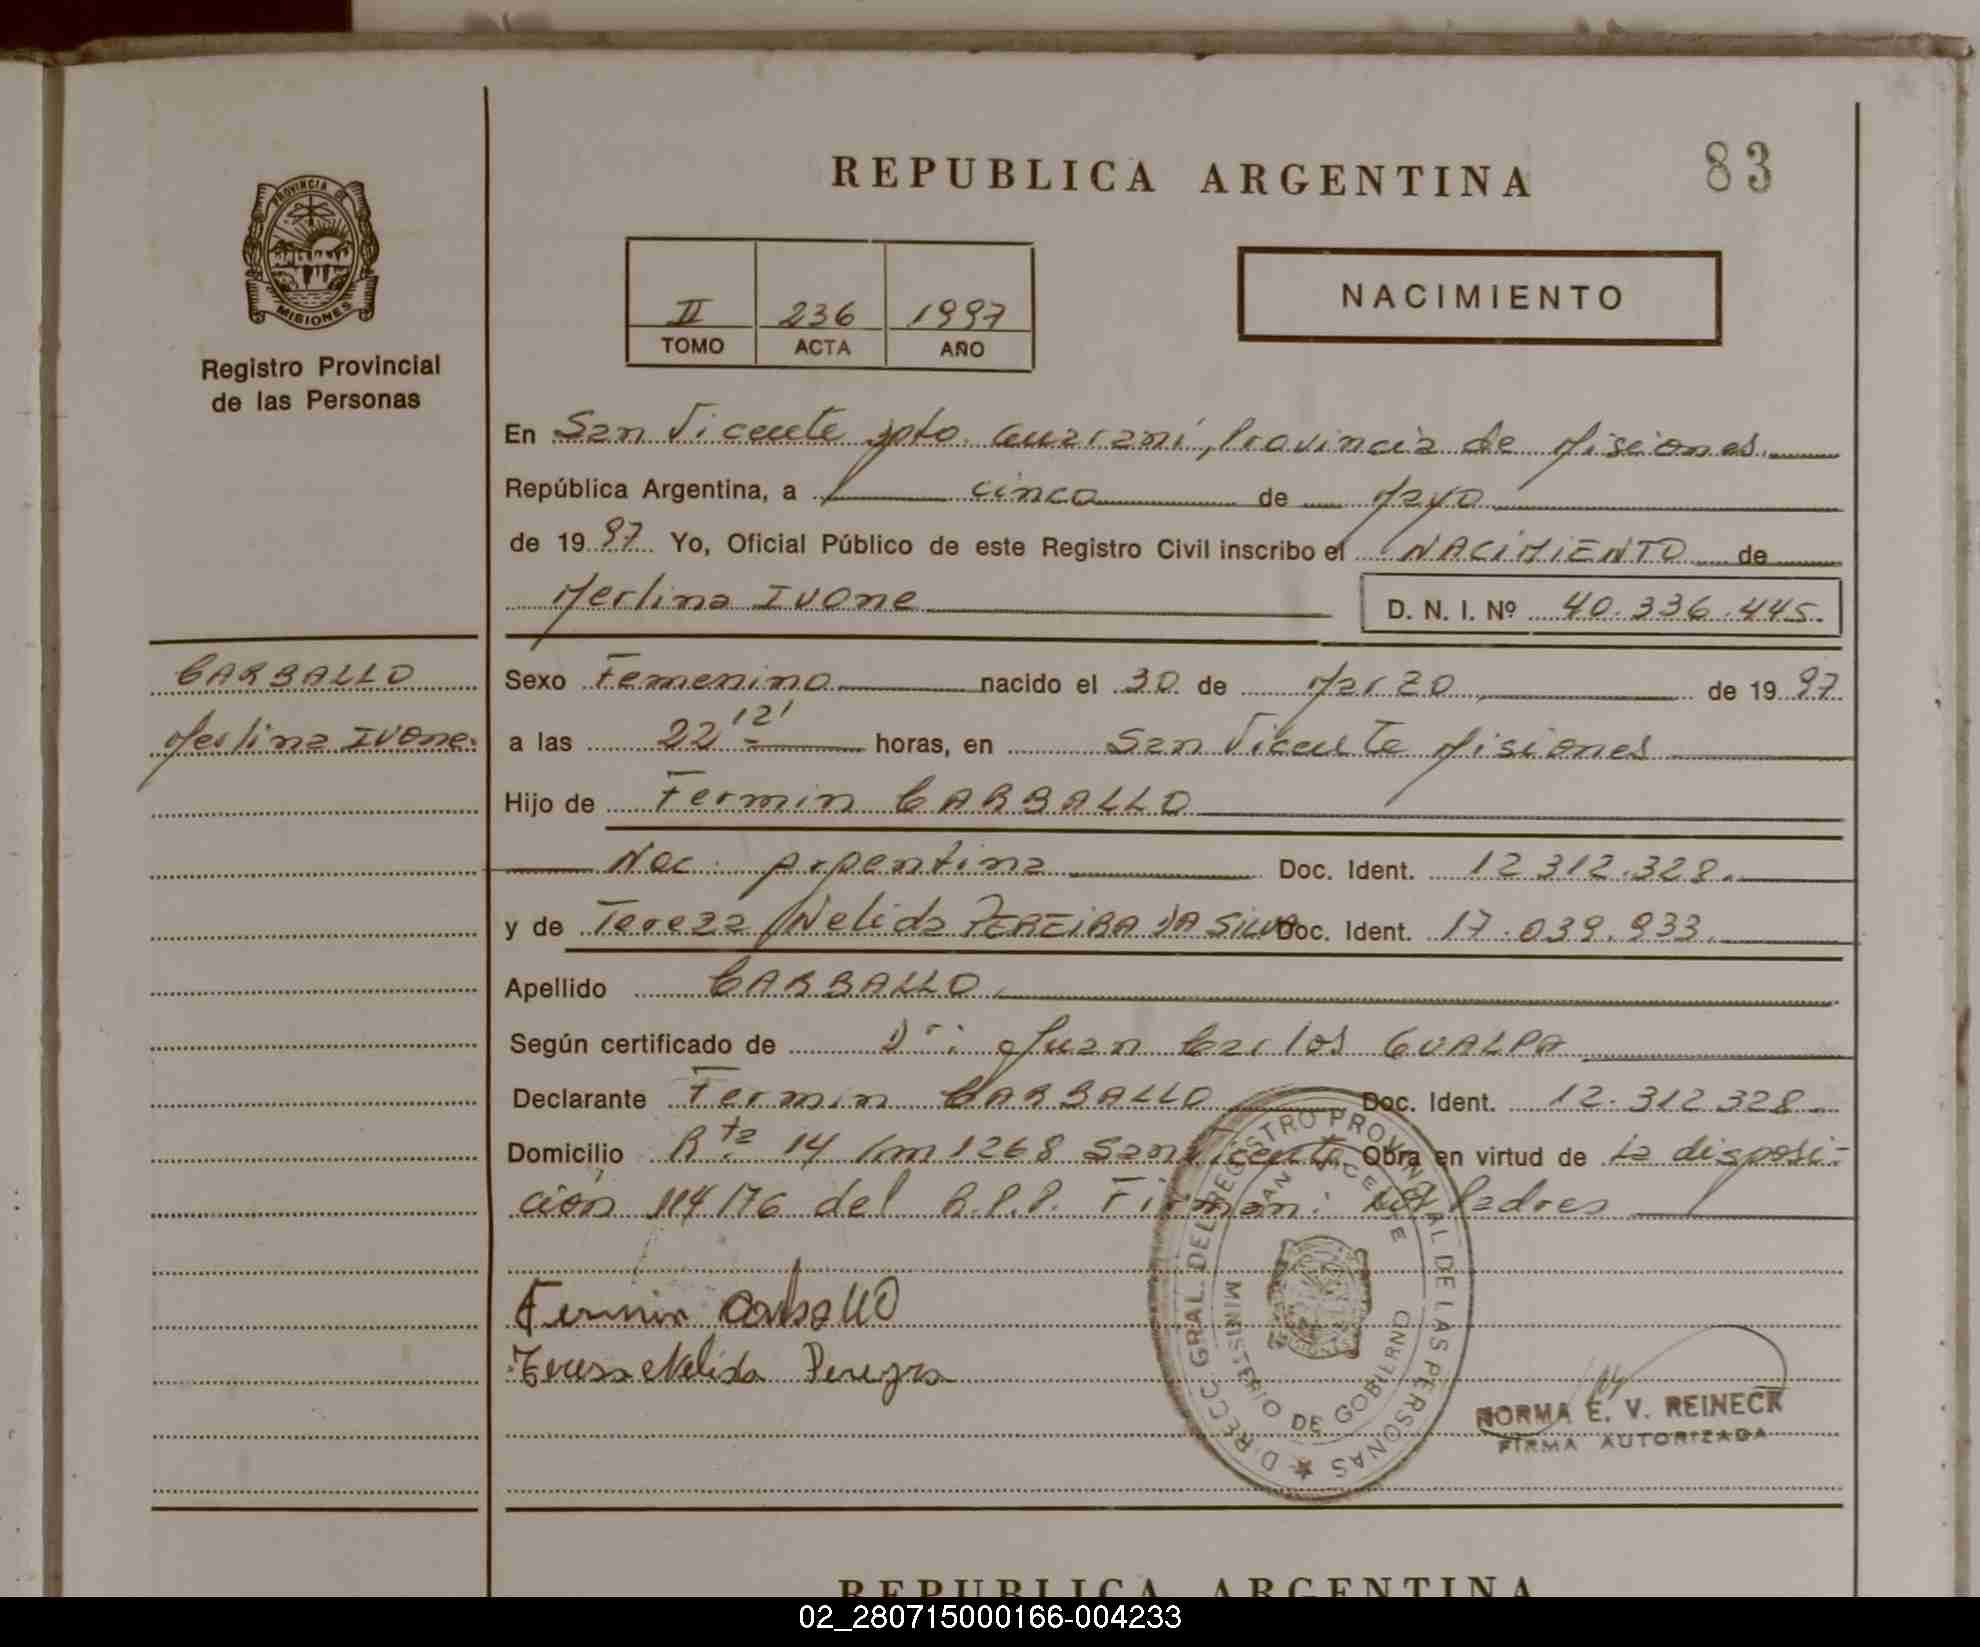 REPUBLICA ARGENTINA
83
PROVINCIA DE
MISIONES
Registro Provincial
de las Personas
II 236 1997
TOMO ACTA AÑO
NACIMIENTO
En San Vicente Dpto. Guaraní, Provincia de Misiones
República Argentina, a cinco de Mayo
de 1997 Yo, Oficial Público de este Registro Civil inscribo el NACIMIENTO de
Merlina IVONE
D. N. I. Nº 40.336.445.
CARBALLO
Merlina IVONE.
Sexo Femenino nacido el 30 de Marzo de 1997
a las 22 12' horas, en San Vicente Misiones
Hijo de Fermin CARBALLO
Nac. Argentina Doc. Ident. 12.312.328.
y de Tereza Nelida PEREIRA DA SILVA Doc. Ident. 17.039.933.
Apellido CARBALLO
Según certificado de Dr: Juan Carlos GUALPA
Declarante Fermin CARBALLO Doc. Ident. 12.312.328.
Domicilio Rta 14 Km 1268 San Vicente Obra en virtud de La disposi-
ción 114/76 del R.P.P. Firman: Los Padres
Fermin Carballo
Teresa Nelida Pereyra
DIRECC. GRAL. DEL REGISTRO PROVINCIAL DE LAS PERSONAS
SAN VICENTE
MINISTERIO DE GOBIERNO
NORMA E. V. REINECK
FIRMA AUTORIZADA
REPUBLICA ARGENTINA
02_280715000166-004233